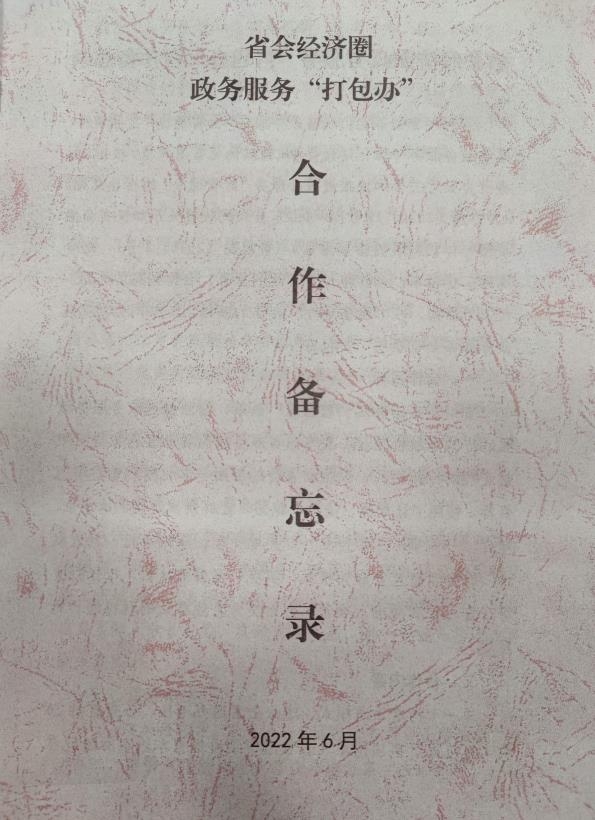 省会经济圈
政务服务“打包办”
合
作
备
忘
录
2022年6月